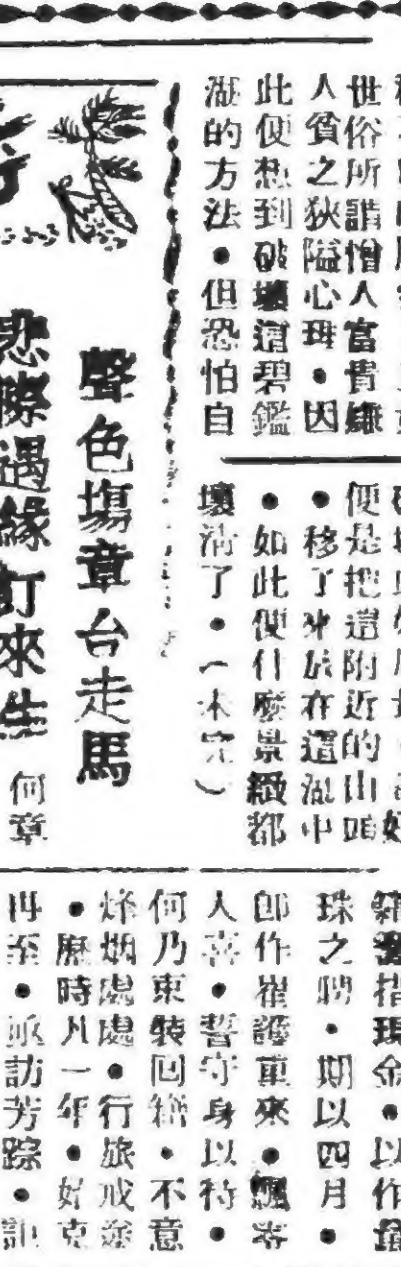 世俗所謂憎人富貴嫌
人貧之狹隘心理●因
此便想到破壞這碧鑑
湖的方法●但恐怕自
便是把這附近的山頭
●移了來放在這湖中
●如此便什麼景緻都
壞清了●(未完)
聲色塲章台走馬
悲際遇緣訂來生
何章
指現金●以作量
珠之聘●期以四月●
即作崔護重來●飄零
人喜●誓守身以待●
何乃束裝回籍●不意
烽烟處處●行旅戒塗
●歷時凡一年●始克
再至●亟訪芳踪●詎